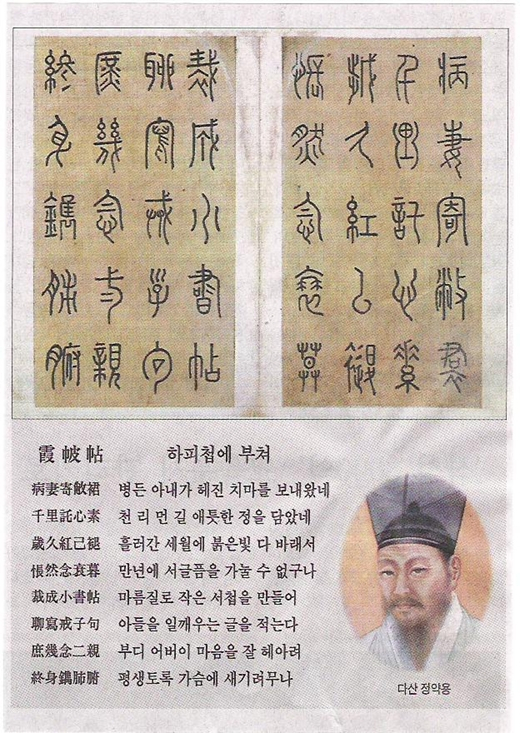 病妻寄敝裙
千里託心素
歲久紅已褪
悵然念衰暮
裁成小書帖
聊寫戒子句
庶幾念二親
終身鐫肺腑
霞帔帖 하피첩에 부쳐
病妻寄敝裙 병든 아내가 헤진 치마를 보내왔네
千里託心素 천 리 먼 길 애틋한 정을 담았네
歲久紅己褪 흘러간 세월에 붉은빛 다 바래서
悵然念衰暮 만년에 서글픔을 가눌 수 없구나
裁成小書帖 마름질로 작은 서첩을 만들어
聊寫戒子句 아들을 일깨우는 글을 적는다
庶幾念二親 부디 어버이 마음을 잘 헤아려
終身鐫肺腑 평생토록 가슴에 새기려무나
다산 정약용